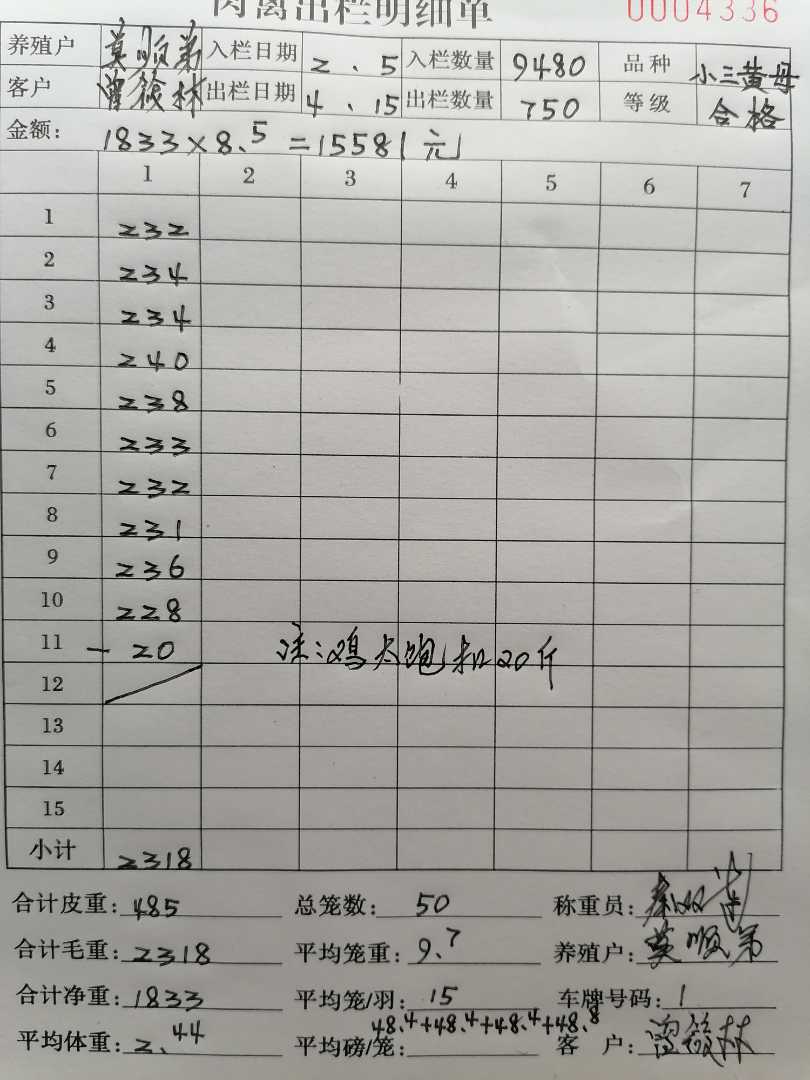 肉离出栏明细单 0004336
养殖户 莫顺弟 入栏日期 2、5 入栏数量 9480 品种 小三黄母
客户 曾筱林 出栏日期 4、15 出栏数量 750 等级 合格
金额: 1833×8.5=15581元
1 2 3 4 5 6 7
1 232
2 234
3 234
4 240
5 238
6 233
7 232
8 231
9 236
10 228
11 -20 注:鸡太饱扣20斤
12
13
14
15
小计 2318
合计皮重: 485 总笼数: 50 称重员:
合计毛重: 2318 平均笼重: 9.7 养殖户: 莫顺弟
合计净重: 1833 平均笼/羽: 15 车牌号码: 1
48.4+48.4+48.4+48.8
平均体重: 2.44 平均磅/笼: 客 户: 曾筱林